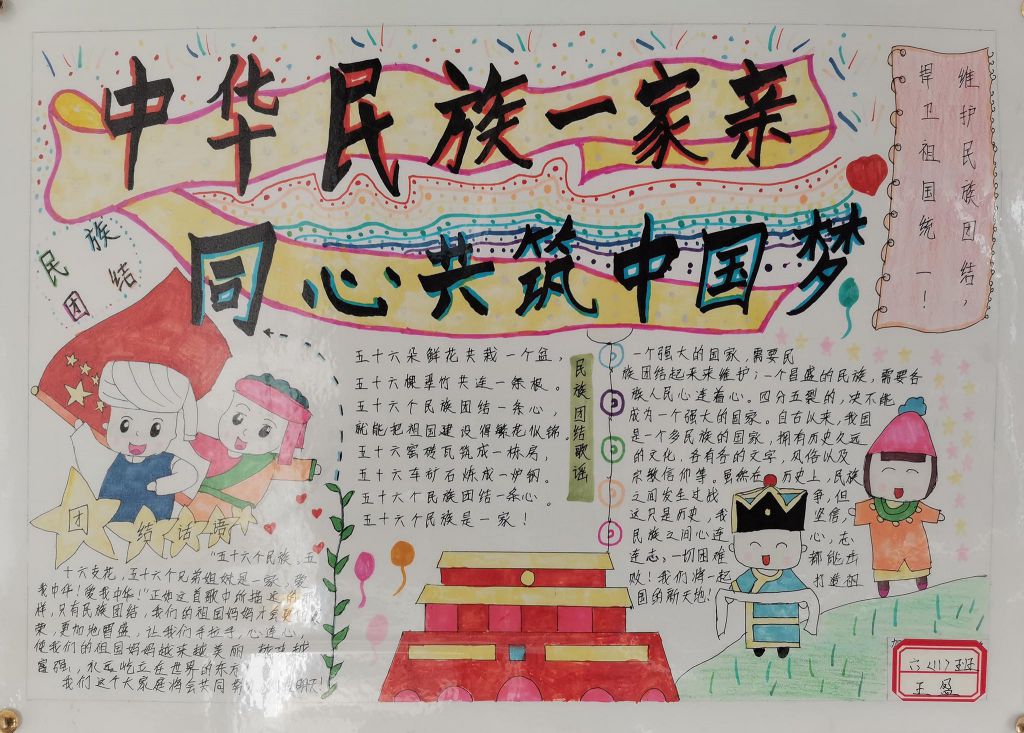 中华民族一家亲
同心共筑中国梦
维护民族团结，
捍卫祖国统一！
民族
团结
五十六朵鲜花共栽一个盆，
五十六棵翠竹共连一条根。
五十六个民族团结一条心，
就能把祖国建设得繁花似锦。
五十六窑砖瓦筑成一栋房，
五十六车矿石炼成一炉钢。
五十六个民族团结一条心
五十六个民族是一家！
民族团结歌谣
一个强大的国家，需要民
族团结起来来维护；一个昌盛的民族，需要各
族人民心连着心。四分五裂的，决不能
成为一个强大的国家。自古以来，我国
是一个多民族的国家，拥有历史久远
的文化，各有各的文字，风俗以及
宗教信仰等。虽然在历史上，民族
之间发生过战争，但
这只是历史，我坚信，
民族之间心连心，志
连志，一切困难都能击
败！我们将一起打造祖
国的新天地！
团结话语
"五十六个民族，五
十六支花，五十六个兄弟姐妹是一家，爱
我中华！爱我中华！"正如这首歌中所描述的
样，只有民族团结，我们的祖国妈妈才会
荣，更加地昌盛，让我们手拉手，心连心，
使我们的祖国妈妈越来越美丽，越来越
富强，永远屹立在世界的东方
我们这个大家庭将会共同明天！
六〈11〉班
王盈